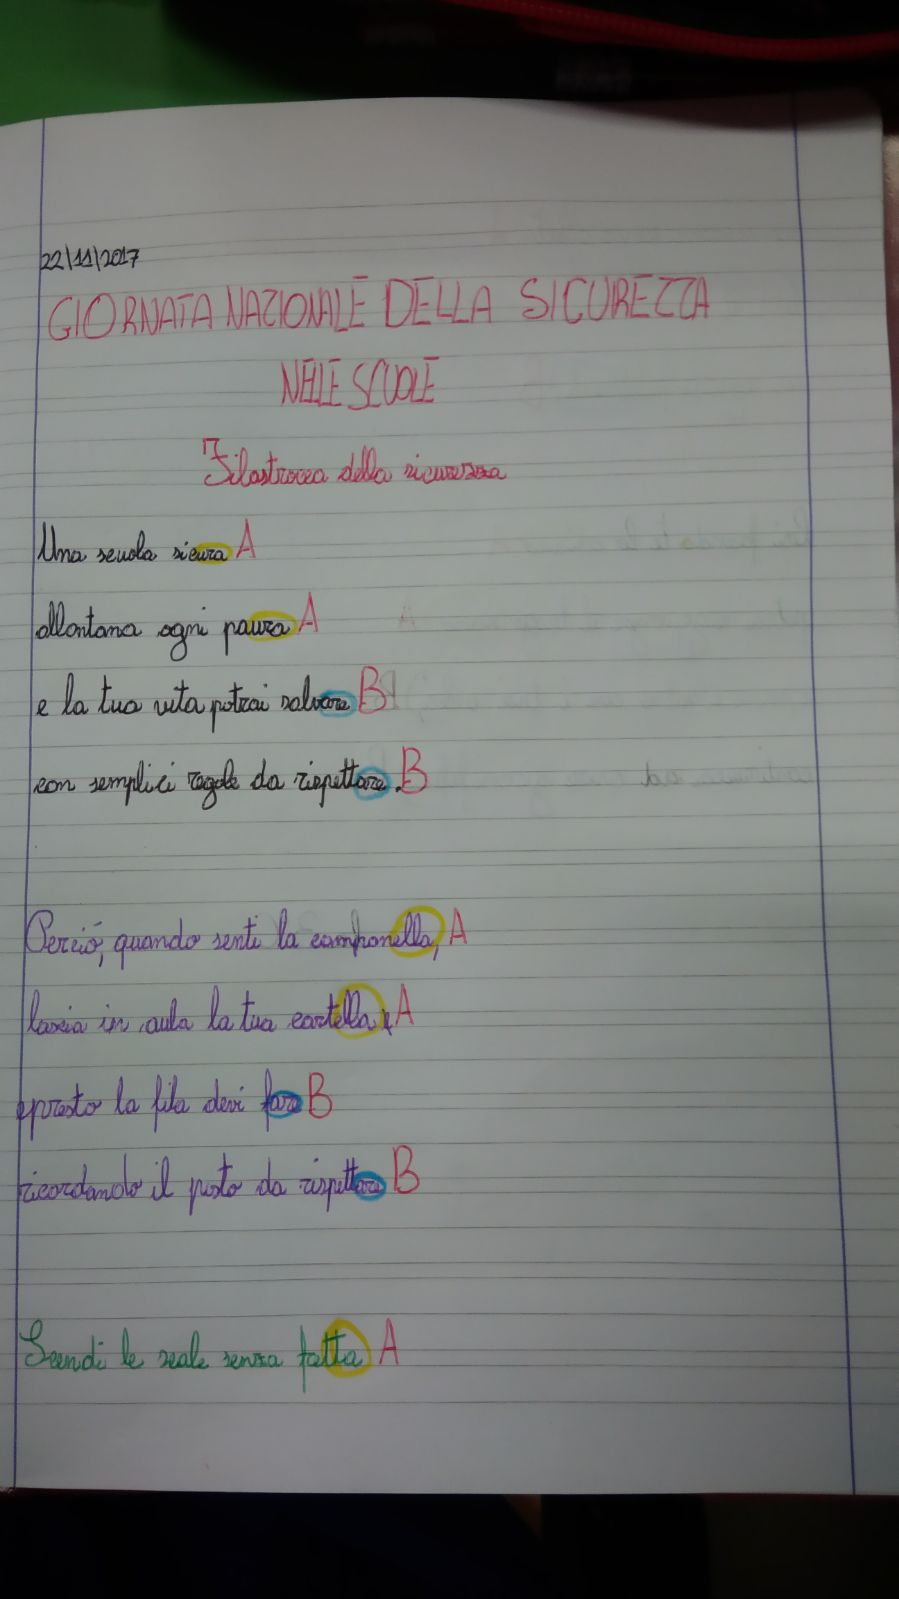 22/11/2017
GIORNATA NAZIONALE DELLA SICUREZZA
NELLE SCUOLE
Filastrocca della sicurezza
Una scuola sicura A
allontana ogni paura A
e la tua vita potrai salvare B
con semplici regole da rispettare. B
Perció, quando senti la campanella, A
lascia in aula la tua cartella, A
e presto la fila devi fare B
ricordando il posto da rispettare B
Scendi le scale senza fatta A